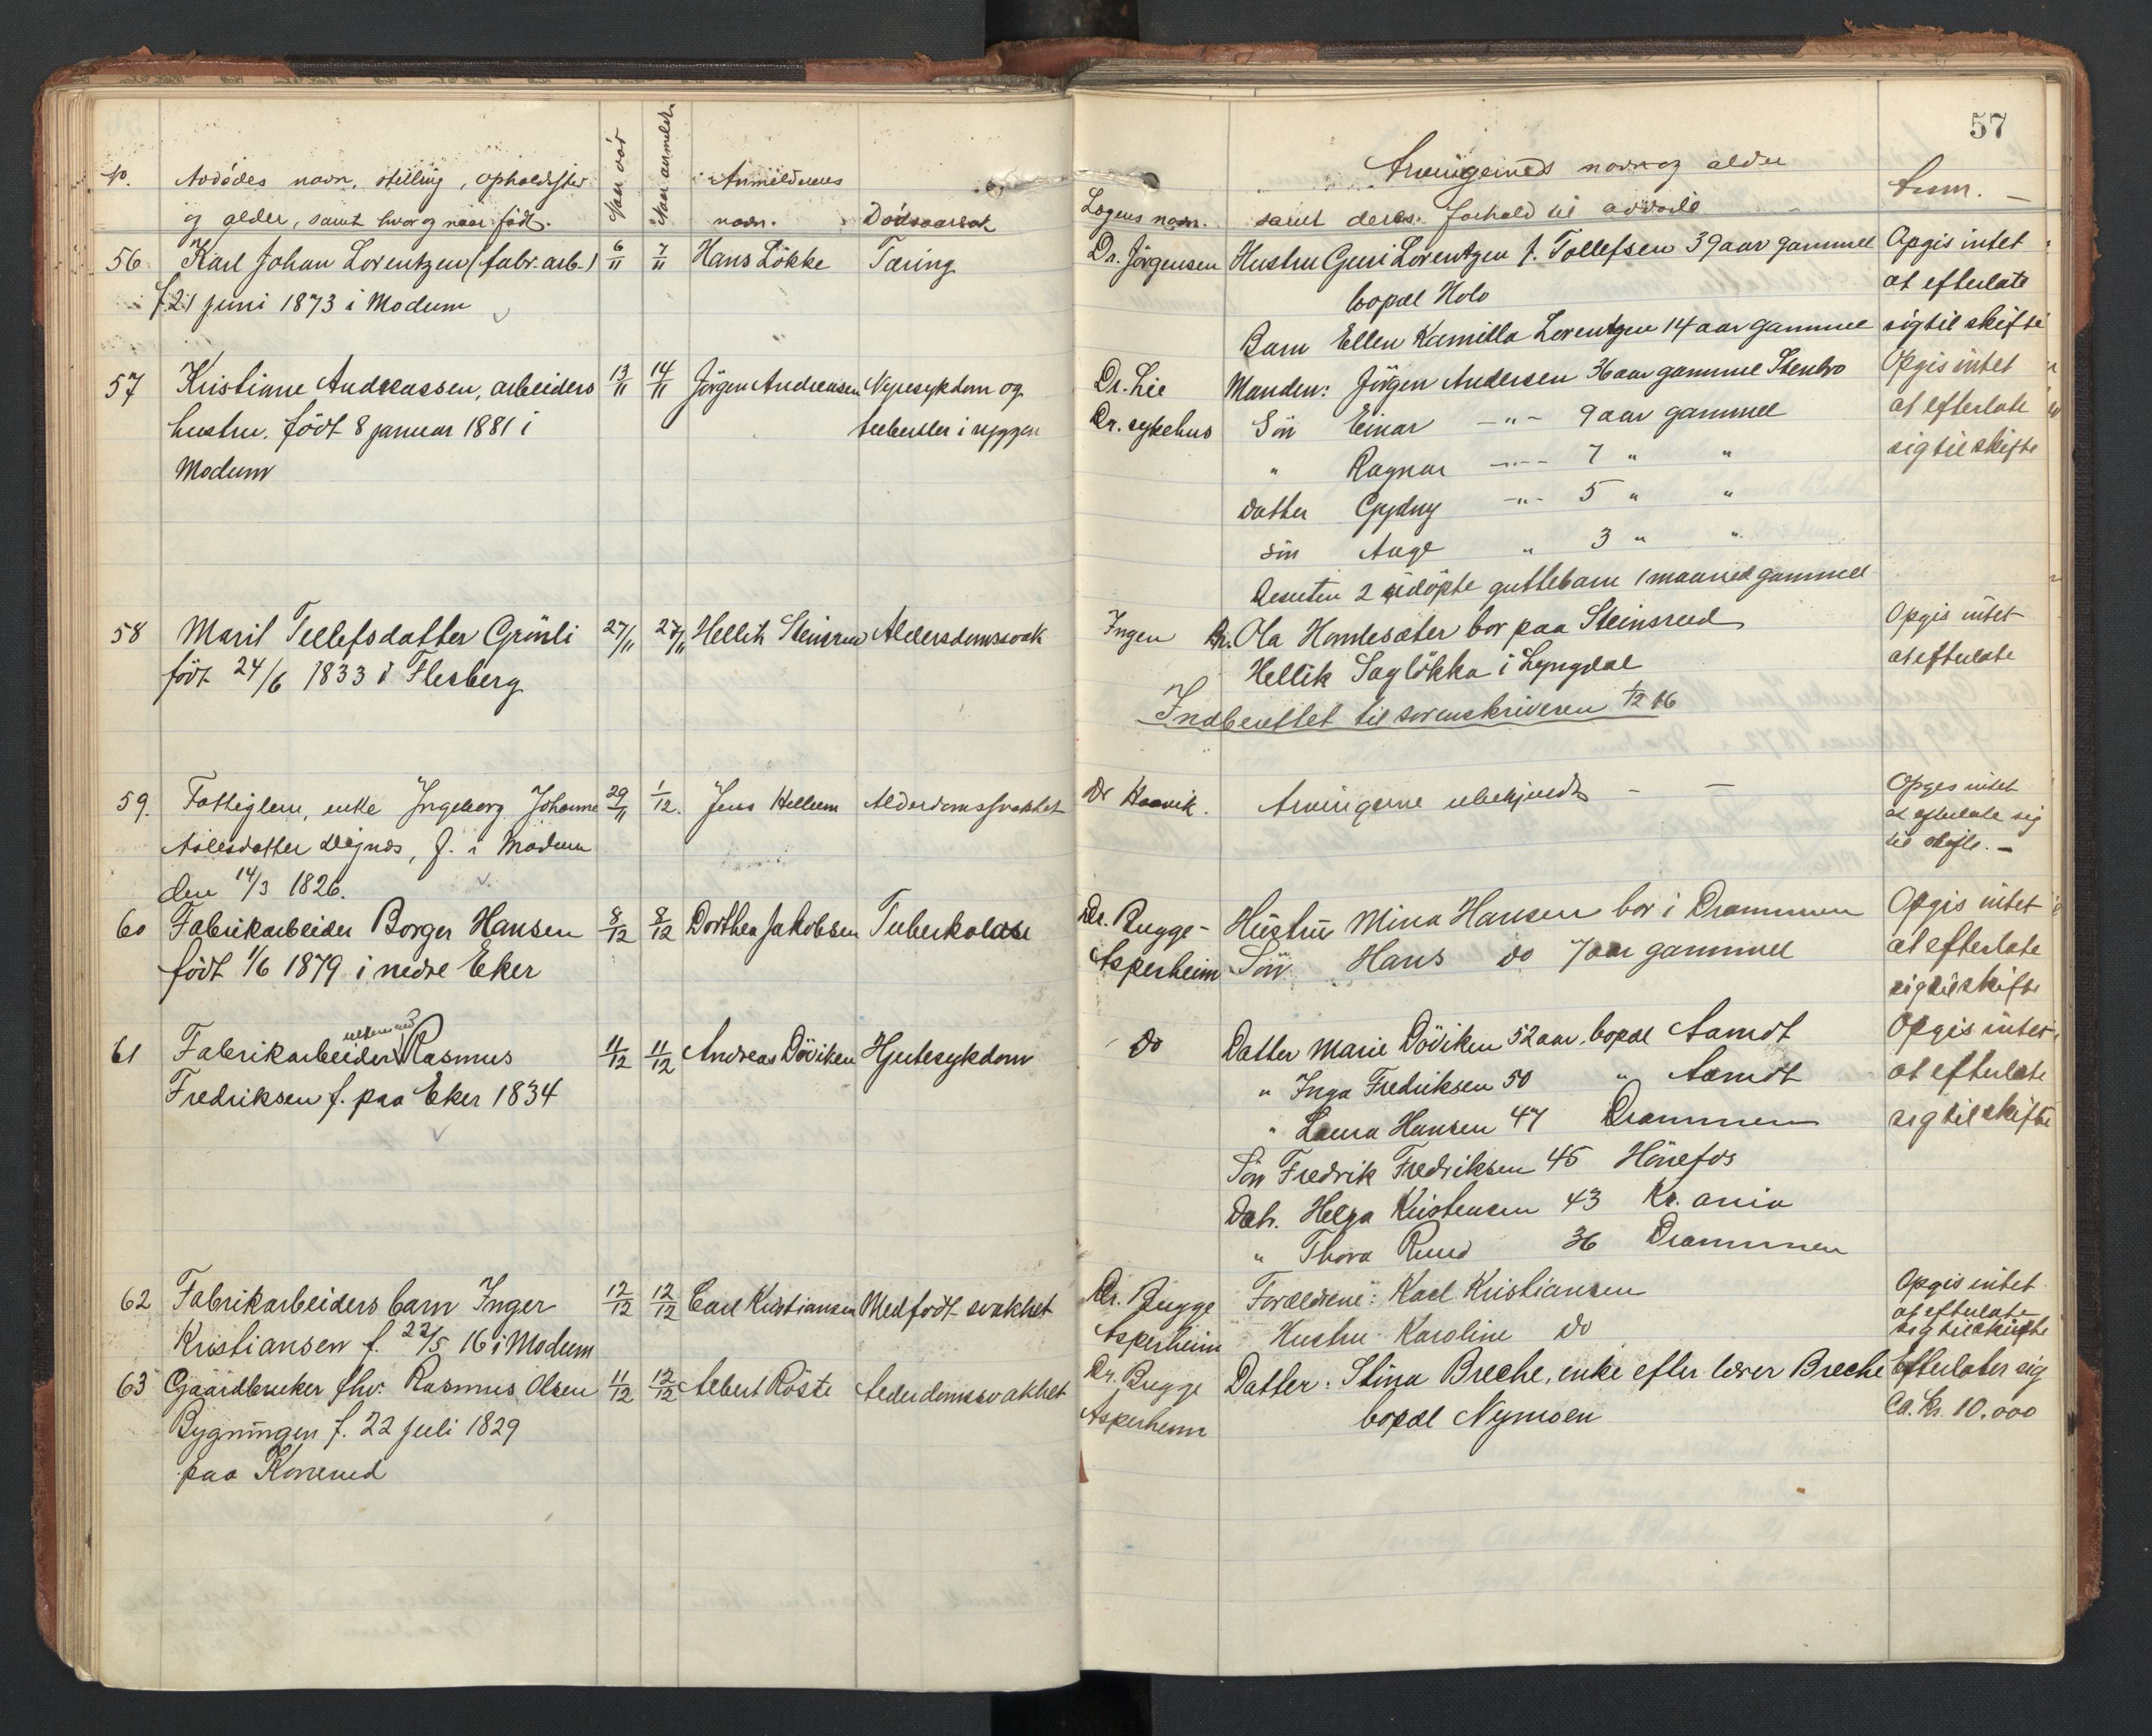 57
No. Avdødes navn, stilling, opholdssted
og alder, samt hvor og naar født.
Naar død
Naar anmeldt
Anmelderens
navn.
Dødsaarsak
Lægens navn.
Arvingernes navn og alder
samt deres forhold til avdøde
Anm.
56 Karl Johan Lorentzen (fabr. arb.) 6/11 7/11 Hans Løkke Tæring
f. 21 juni 1873 i Modum
Dr. Jørgensen Hustru Guri Lorentzen f. Tollefsen 39 aar gammel Opgis intet
bopæl Holo at efterlate
Barn Ellen Kamilla Lorentzen 14 aar gammel sig til skifte
57 Kristiane Andreassen, arbeiders 13/11 14/11 Jörgen Andreassen Nyresykdom og
hustru. født 8 januar 1881 i tuberkler i ryggen
Modum
Dr. Lie Manden: Jörgen Andersen 36 aar gammel Stenbro Opgis intet
Dr. sykehus Sön Einar —"— 9 aar gammel at efterlate
" Ragnar —"— 7 " " sig til skifte
datter Gydny —"— 5 " "
sön Aage " 3 " "
Desuten 2 udöpte guttebarn 1 maaned gammel
58 Marit Tellefsdatter Grönli 27/11 27/11 Hellik Steinsrud Aldersdomssvak
født 24/6 1833 i Flesberg
Ingen Br. Ola Homlesæter bor paa Steinsrud Opgis intet
Hellik Sagløkka i Lyngdal at efterlate
Indberettet til sorenskriveren 1/12 16
59. Fattiglem, enke Ingeborg Johanne 29/11 1/12. Jens Hellum Alderdomssvakhet
Aslesdatter , f. i Modum
den 14/3 1826.
Dr Haavik. Arvingerne ubekjendt — — Opges intet
at efterlate sig
til skifte. —
60 Fabrikarbeider Borger Hansen 8/12 8/12 Dorthea Jakobsen Tuberkolose
født 1/6 1879 i nedre Eker
Dr. Bugge- Hustru Mina Hansen bor i Drammen Opgis intet
Asperheim Sön Hans do 7 aar gammel at efterlate
sig til skifte
61 Fabrikarbeider enkemand Rasmus 11/12 11/12 Andreas Döviken Hjertesykdom
Fredriksen f. paa Eker 1834
do Datter Marie Döviken 52 aar, bopæl Aamot Opgis intet
" Inga Fredriksen 50 " Aamot at efterlate
" Laura Hansen 47 Drammen sig til skifte
Sön Fredrik Fredriksen 45 Hönefos
Datr. Helga Kristensen 43 Kr. ania
" Thora Ruud 36 Drammen
62 Fabrikarbeiders barn Inger 12/12 12/12 Carl Kristiansen Medfødt svakhet
Kristiansen f. 22/5 16 i Modum
Dr. Bugge Forældrene: Karl Kristiansen Opgis intet
Asperheim Hustru Karoline do at efterlate
sig til skifte
63 Gaardbruker fhv. Rasmus Olsen 11/12 12/12 Albert Röste Alderdomssvakhet
Bygningen f. 22 juli 1829
paa Korsrud
Dr. Bugge Datter: Stina Breche, enke efter lærer Breche Efterlater sig
Asperheim bopæl Nymoen Ca. Kr. 10.000